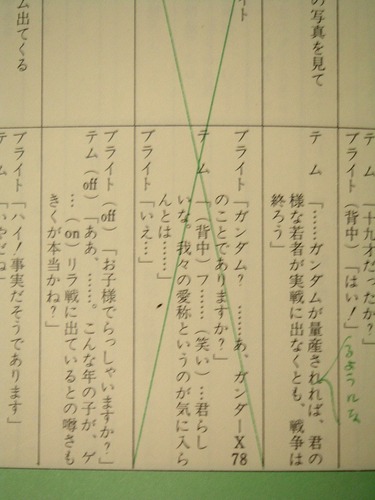 の写真を見て
ト
ム出てくる
テ　ム「十九才だったか?」
ブライト（背中）「はい!」
テ　ム「……ガンダムが量産されれば、君の
様な若者が実戦に出なくとも、戦争は
終ろう」
るようにな
ブライト「ガンダム?　……あ、ガンダーX78
のことでありますか?」
テ　ム「（背中）フ……（笑い）…君らし
いな。我々の愛称というのが気に入ら
んとは……」
ブライト「いえ…」
ブライト（off）「お子様でらっしゃいますか?」
テ　ム（off）「ああ、……。こんな年の子が、ゲ
…（on）リラ戦に出ているとの噂さも
きくが本当かね?」
ブライト「ハイ!事実だそうであります」
テ　ム「いやだね